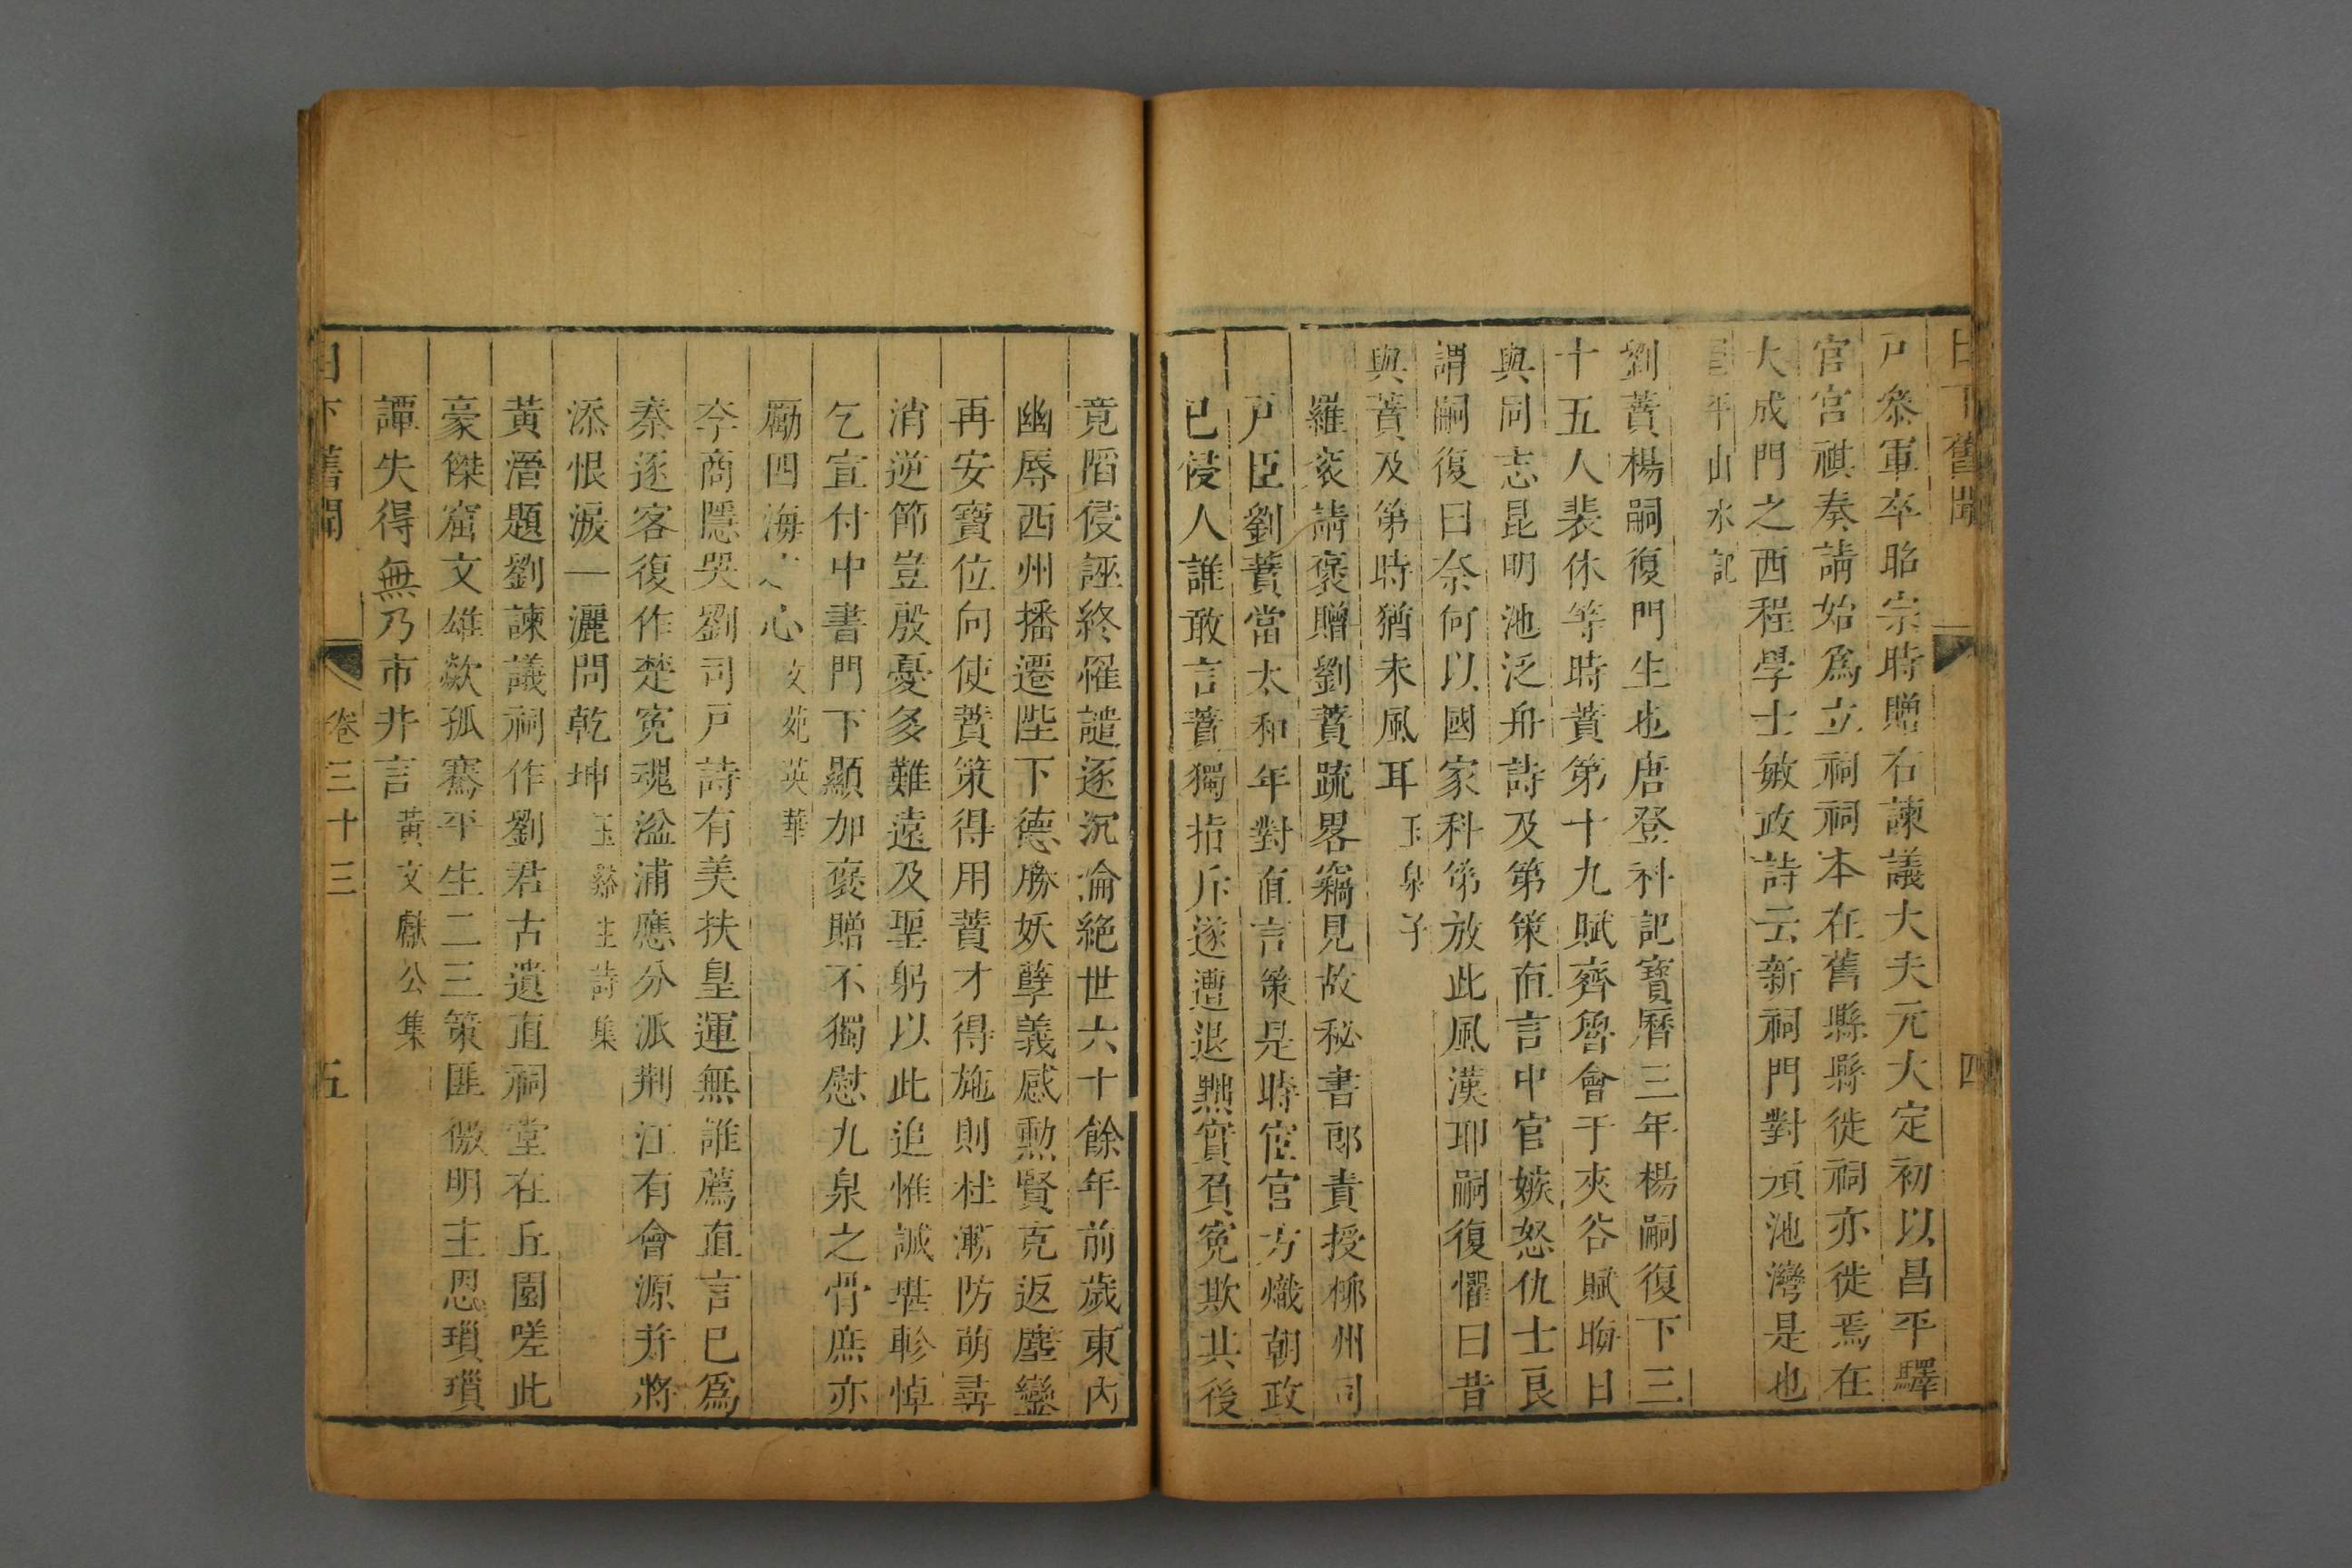 日下舊聞
四
戸叅軍卒昭宗時贈右諫議大夫元大定初以昌平驛
官宮祺奏請始爲立祠祠本在舊縣縣徙祠亦徙焉在
大成門之西程學士敏政詩云新祠門對泮池灣是也
昌平山水記
劉蕡楊嗣復門生也唐登科記寶曆三年楊嗣復下三
十五人裴休等時蕡第十九賦齊魯會于夾谷賦晦日
與同志昆明池泛舟詩及第策直言中官嫉怒仇士良
謂嗣復曰奈何以國家科第放此風漢耶嗣復懼曰昔
與蕡及第時猶未風耳 玉泉子
羅衮請褒贈劉蕡疏畧竊見故秘書郎責授柳州司
戸臣劉蕡當太和年對直言策是時宦官方熾朝政
已侵人誰敢言蕡獨指斥遂遭退黜實負寃欺其後
竟陷侵誣終罹譴逐沉淪絶世六十餘年前歲東內
幽辱西州播遷陛下德勝妖孽義感勳賢克返塵鑾
再安寶位向使蕡策得用蕡才得施則杜漸防萌尋
消逆節豈殷憂多難遠及聖躬以此追惟誠堪軫悼
乞宣付中書門下顯加褒贈不獨慰九泉之骨庶亦
勵四海之心 文苑英華
李商隱哭劉司戸詩有美扶皇運無誰薦直言已爲
秦逐客復作楚寃魂湓浦應分派荆江有會源并將
添恨淚一灑問乾坤 玉谿生詩集
黃溍題劉諫議祠作劉君古遺直祠堂在丘園嗟此
豪傑窟文雄歘孤騫平生二三策匪徼明主恩瑣瑣
譚失得無乃市井言 黃文獻公集
日下舊聞
卷三十三
五